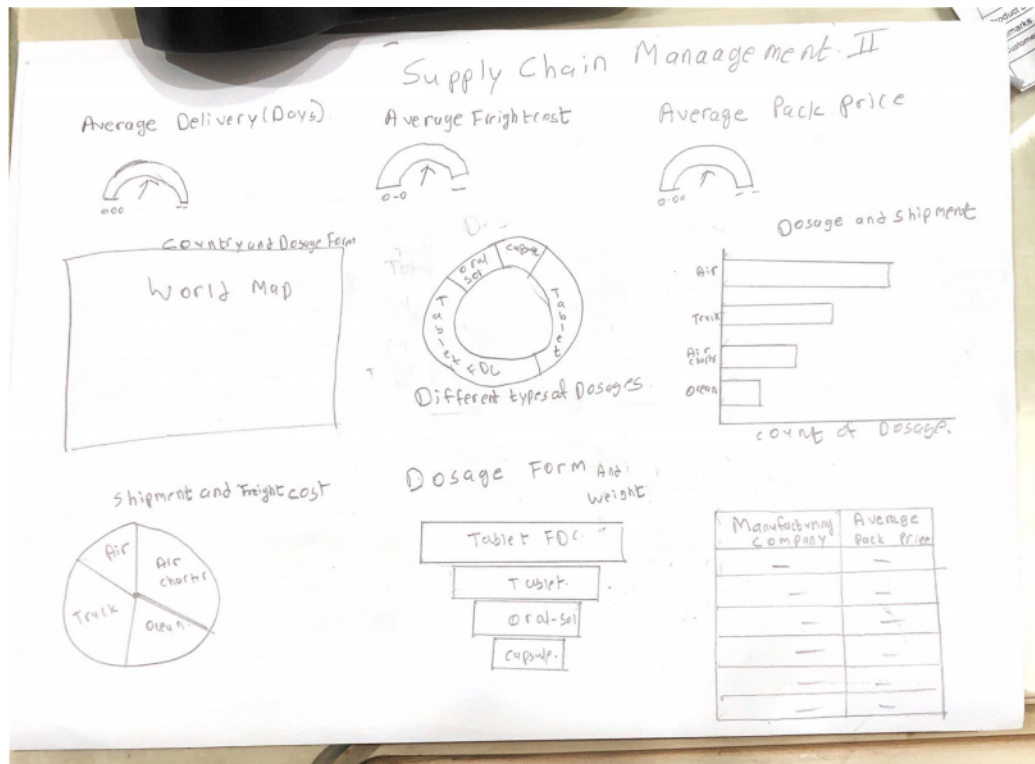 Supply Chain Manaagement II
Average Delivery (Days).
Average Freightcost
Average Pack price
0.00
--
0-0
--
0.00
--
Country and Dosage Form
World Map
oral sol
capsule
Tablet
Tablet FDC
Different types of Dosages.
Dosage and shipment
Air
Truck
Air
charter
Ocean
count of Dosage.
Shipment and Freight cost
Air
Air
charter
Truck
Ocean
Dosage Form And
weight
Tablet FDC.
Tablet.
oral-sol
capsule.
Manufacturing
Company
Average
Pack Price